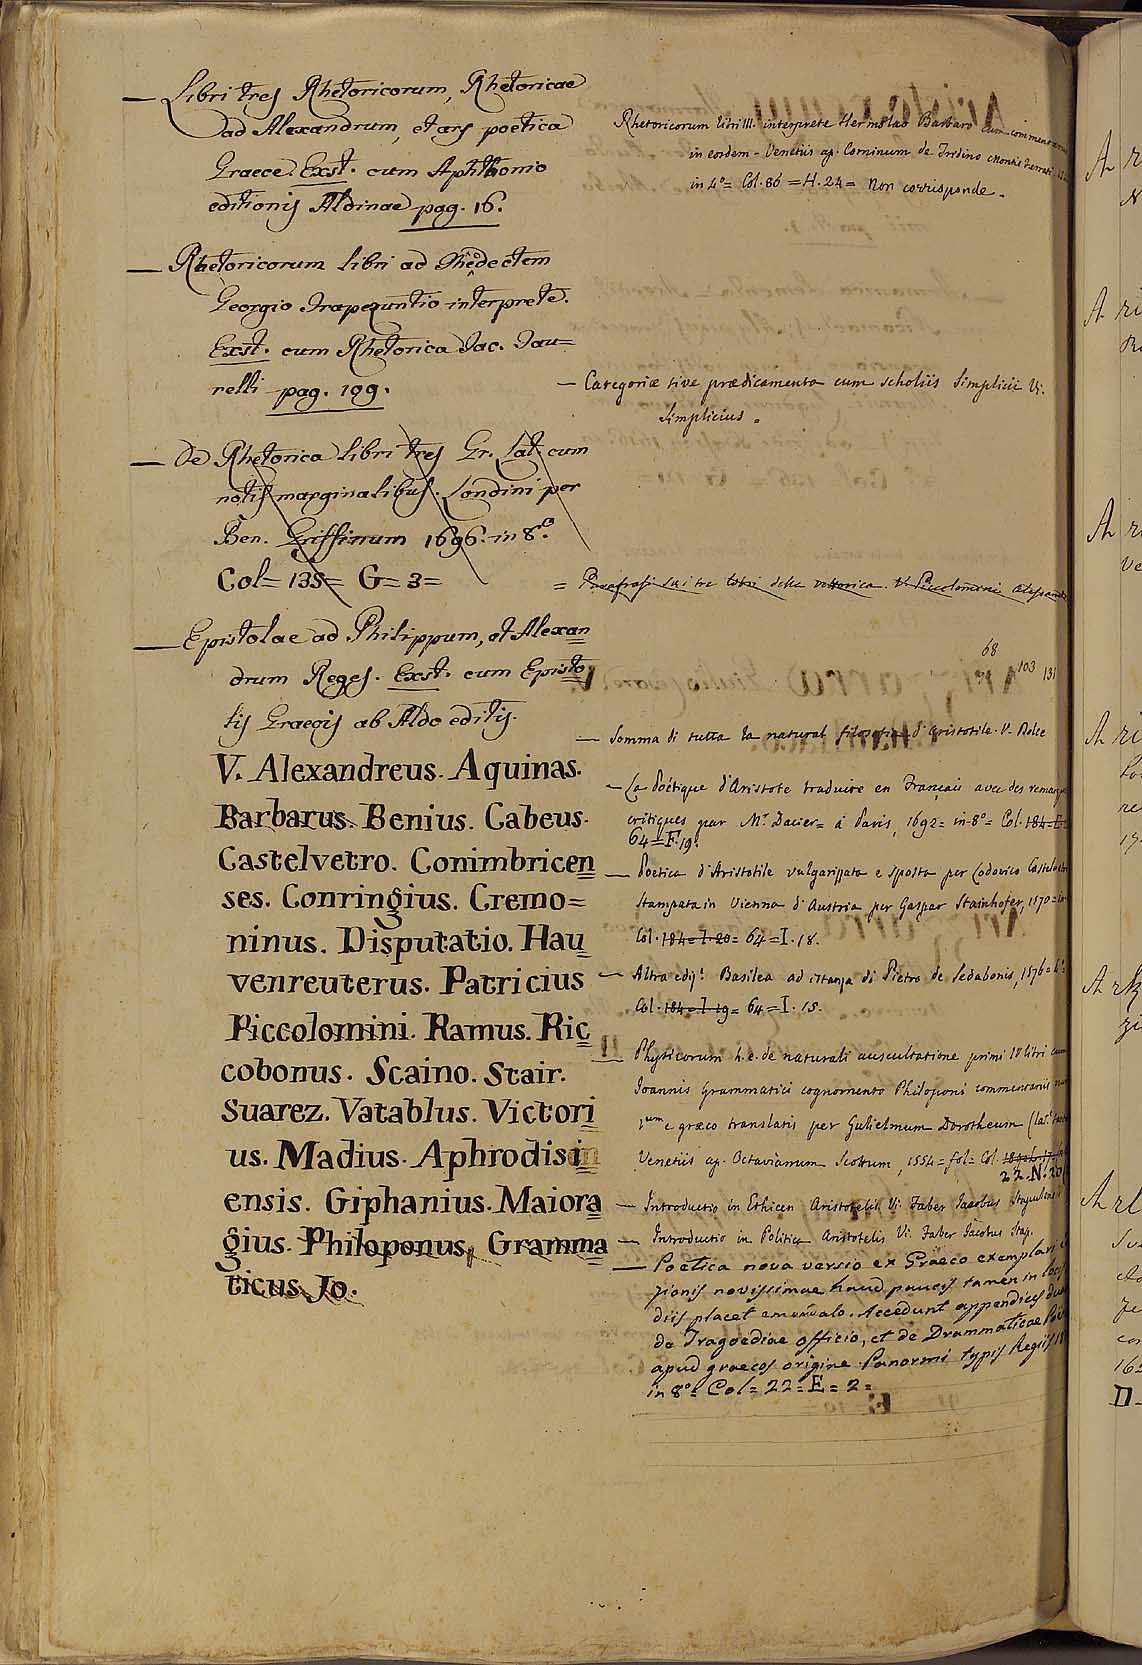 — Libri tres Rhetoricorum, Rhetoricae
ad Alexandrum, et ars poetica
Graece. Exst. cum Aphthonio
editionis Aldinae pag. 16.
— Rhetoricorum libri ad Theodectem
Georgio Trapezuntio interprete.
Exst. cum Rhetorica Jac. Tau=
relli pag. 199.
— De Rhetorica libri tres Gr. Lat. cum
notis marginalibus. Londini per
Ben. Griffinum 1696. in 8.º
Col= 135= G= 3=
— Epistolae ad Philippum, et Alexan
drum Reges. Exst. cum Episto
lis Graecis ab Aldo editis.
V. Alexandreus. Aquinas.
Barbarus. Benius. Cabeus.
Castelvetro. Conimbricen
ses. Conringius. Cremo=
ninus. Disputatio. Hau
venreuterus. Patricius
Piccolomini. Ramus. Ric
cobonus. Scaino. Stair.
Suarez. Vatablus. Victori
us. Madius. Aphrodisi
ensis. Giphanius. Maiora
gius. Philoponus, Gramma
ticus Jo.
Rhetoricorum libri III. interprete Hermolao Barbaro cum
in eosdem - Venetiis ap. Cominum de Tridino Montis Ferrati
in 4º= Col. 86 = H. 24= Non corrisponde.
— Categoriæ sive prædicamenta cum scholiis Simplicii Vi.
Simplicius.
= Parafrasi sui tre libri della rettorica. V. Piccolomini
68
103 131
— Somma di tutta la natural filosofia d'Aristotile. V. Dolce
— La Poétique d'Aristote traduite en Français avec des
critiques par Mr. Dacier= á Paris, 1692= in-8º= Col. 184=E
64=F. 19.
— Poetica d'Aristotile vulgarizzata e sposta per Lodovico
stampata in Vienna d'Austria per Gaspar Stainhofer, 1570=
Col. 184=I. 20= 64=I. 18.
— Altra ediz. Basilea ad istanza di Pietro de Sedabonis, 1576=4º=
Col. 184=I. 19= 64=I. 15.
— Physicorum h. e. de naturali auscultatione primi IV libri cum
Joannis Grammatici cognomento Philoponi commentariis
e græco translatis per Gulielmum Dorotheum
Venetiis ap. Octavianum Scottum, 1554= fol= Col.
22. N. 26
— Introductio in Ethicen Aristotelis. Vi. Faber Jacobus
— Introductio in Politica Aristotelis Vi. Faber Jacobus Stap.
— Poetica nova versio ex Graeco exemplari
zionis novissimae haud paucis tamen in locis
diis placet emendato. Accedunt appendices duae
de Tragoediae officio, et de Drammaticae
apud graecos origine. Panormi typis Regiis
in 8º= Col= 22= E= 2=